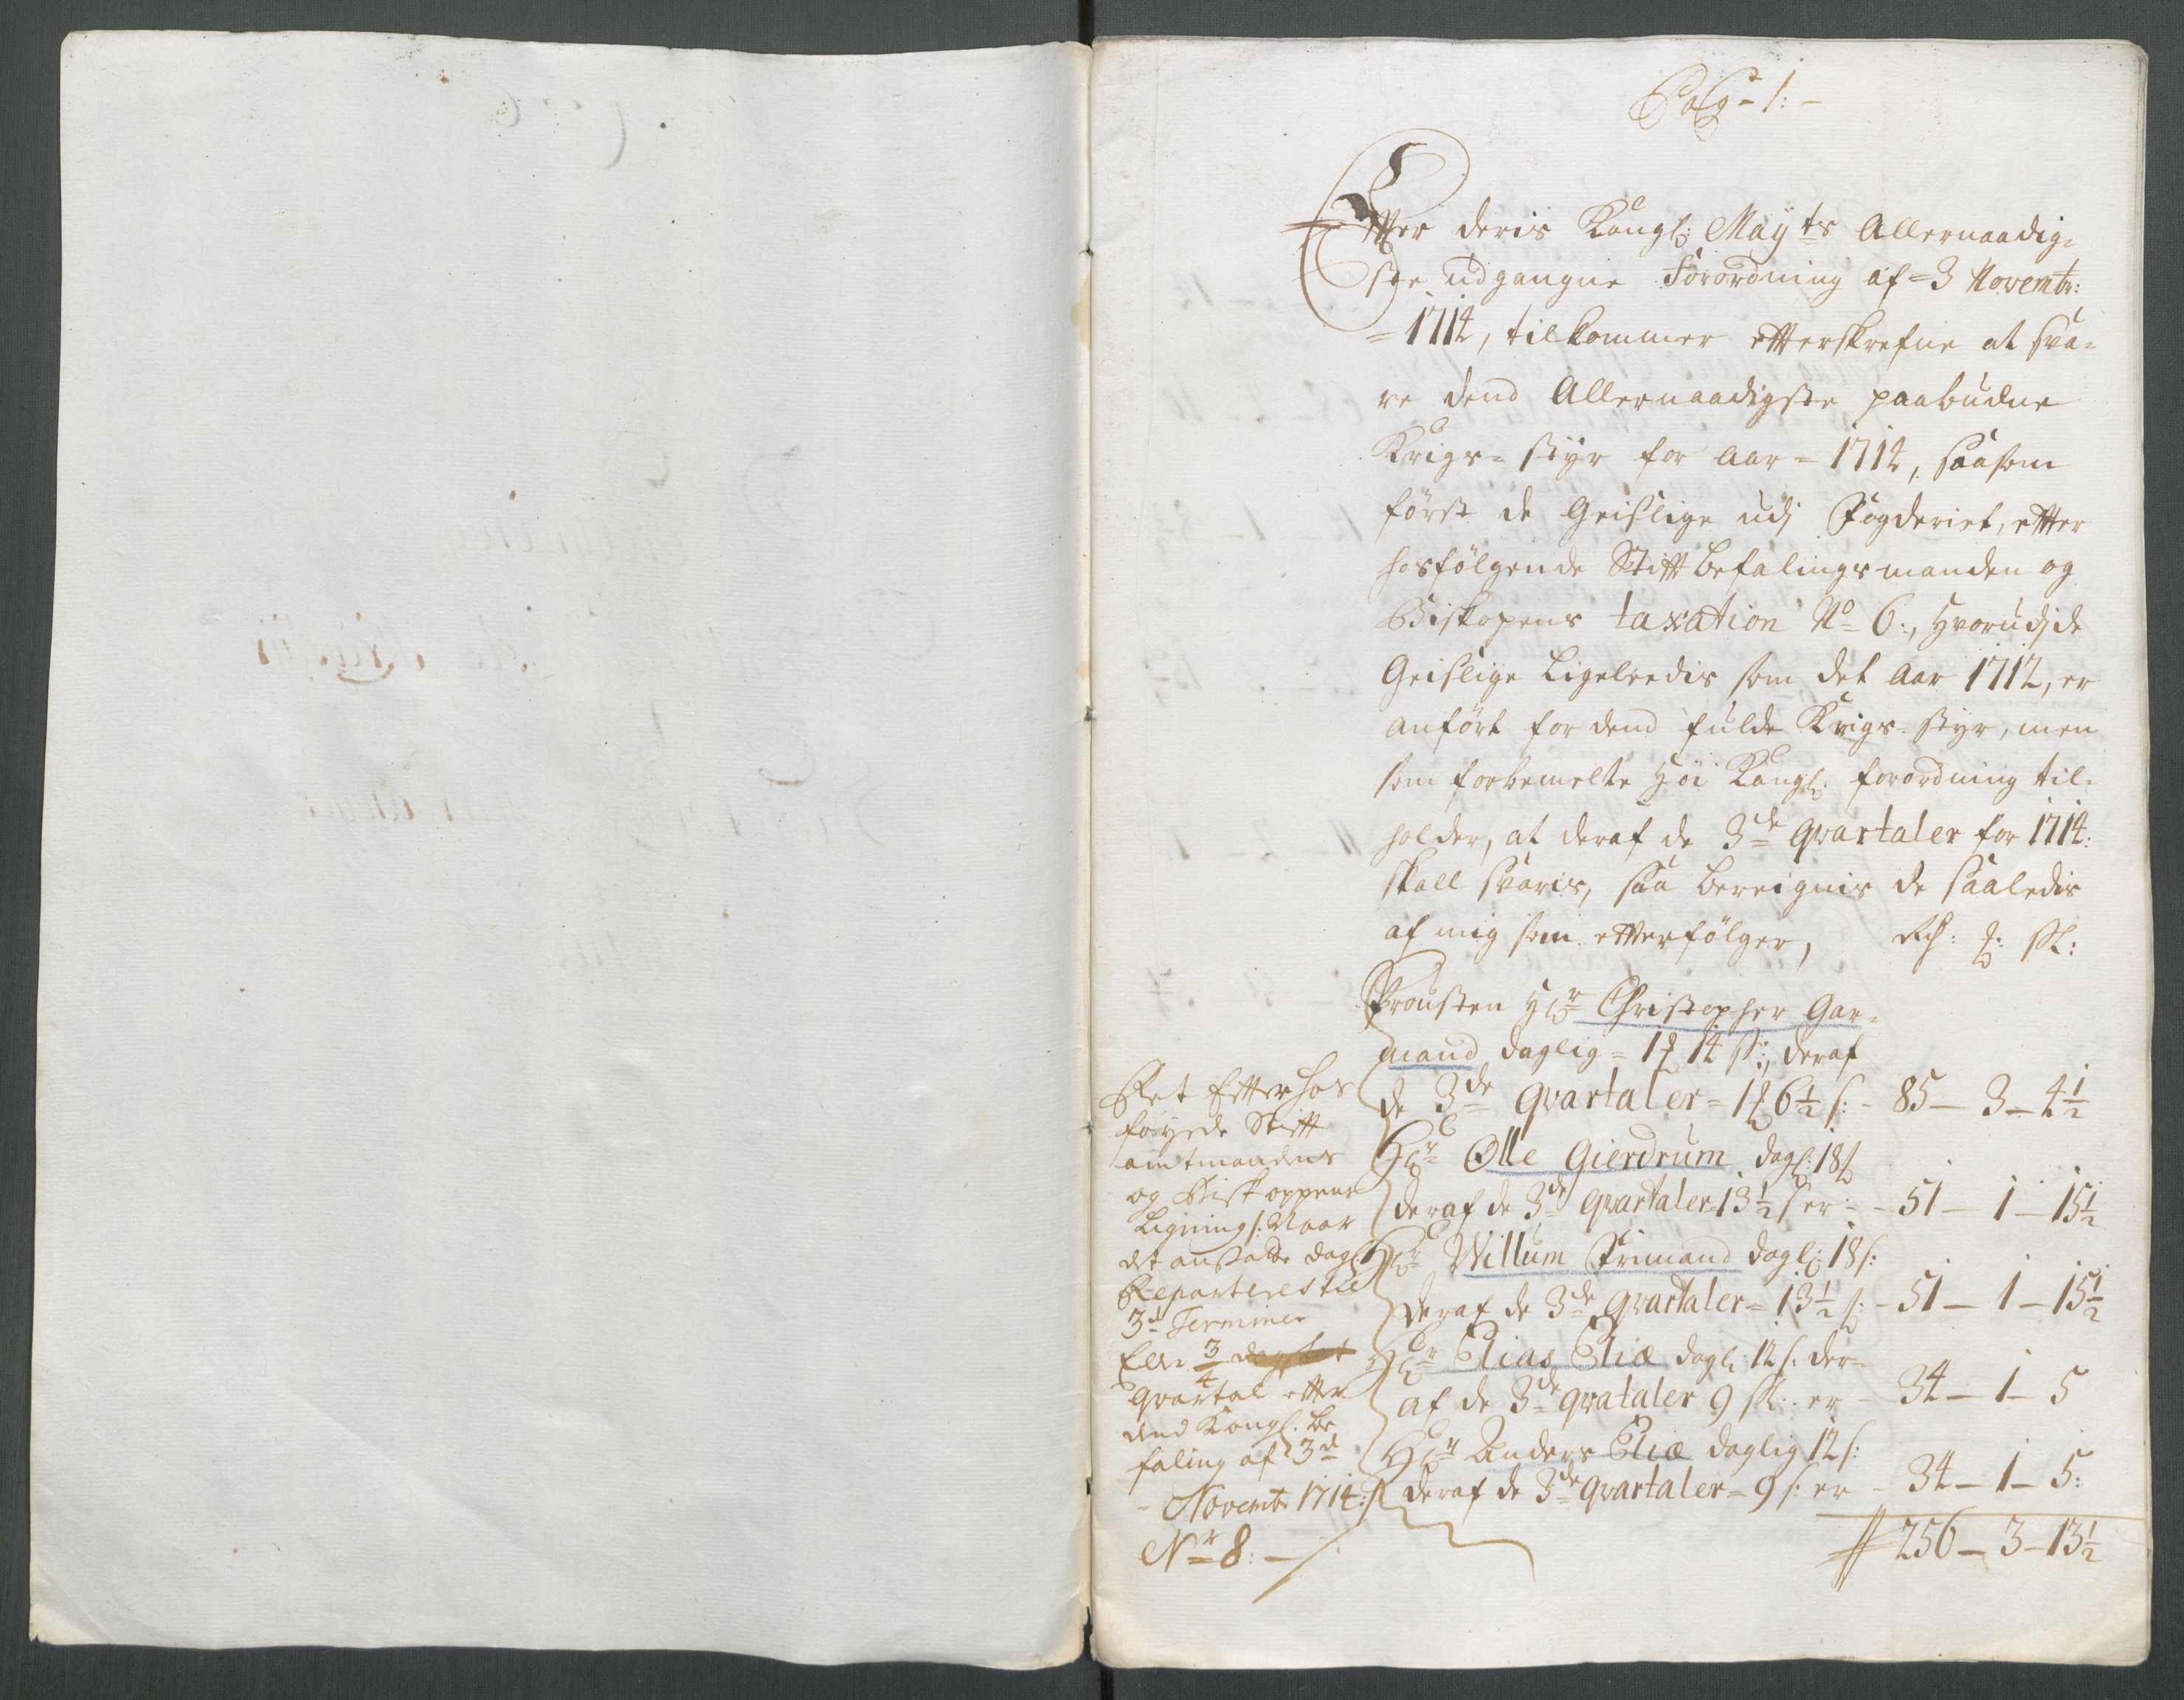 Pag: 1:
Effter deris Kongl: Mayts Allernaadig-
ste udgangne Forordning af 3 Novembr:
1714, tilkommer effterskrefne at sva-
re dend Allernaadigste paabudne
Krigs-styr for Aar 1714, saasom
först de Geistlige udj Fogderiet, effter
hosfölgende Stifft befalingsmanden og
Biskopens taxation No 6:, hvorudj de
Geistlige Ligeleedis som det Aar 1712, er
anfört for dend fulde Krigs-styr, men
som forbemelte höi Kongl: forordning til-
holder, at deraf de 3de qvartaler for 1714:
skall svaris, saa bereignis de saaledis
af mig som effterfölger, Rd: ƶ: ſk:
Prousten Hr Christopher Gar-
mand daglig 1 ƶ 14 s:, deraf
de 3de qvartaler 1 ƶ 6½ s: - 85 - 3 - 4½
Hr Olle Gierdrum dagl: 18 s
deraf de 3de qvartaler 13½ s er - 51 - 1 - 15½
Hr Willum Frimand dagl: 18 s:
deraf de 3de qvartaler 13½ s: - 51 - 1 - 15½
Hr Elias Eliæ dagl: 12 s: der-
af de 3de qvataler 9 sk: er - 34 - 1 - 5
Hr Anders Eliæ daglig 12 s:
deraf de 3de qvartaler 9 s: er - 34 - 1 - 5:
256 - 3 - 13½
Ret Effter hos
föyede Stifft
amtmandens
og Biskoppens
Ligning /: Naar
det ansatte dagl
Reparteres til
3de Terminer
Eller 3/4
qvartal effter
dend Kongl: be
faling af 3de
Novembr 1714: /
Nr 8: -